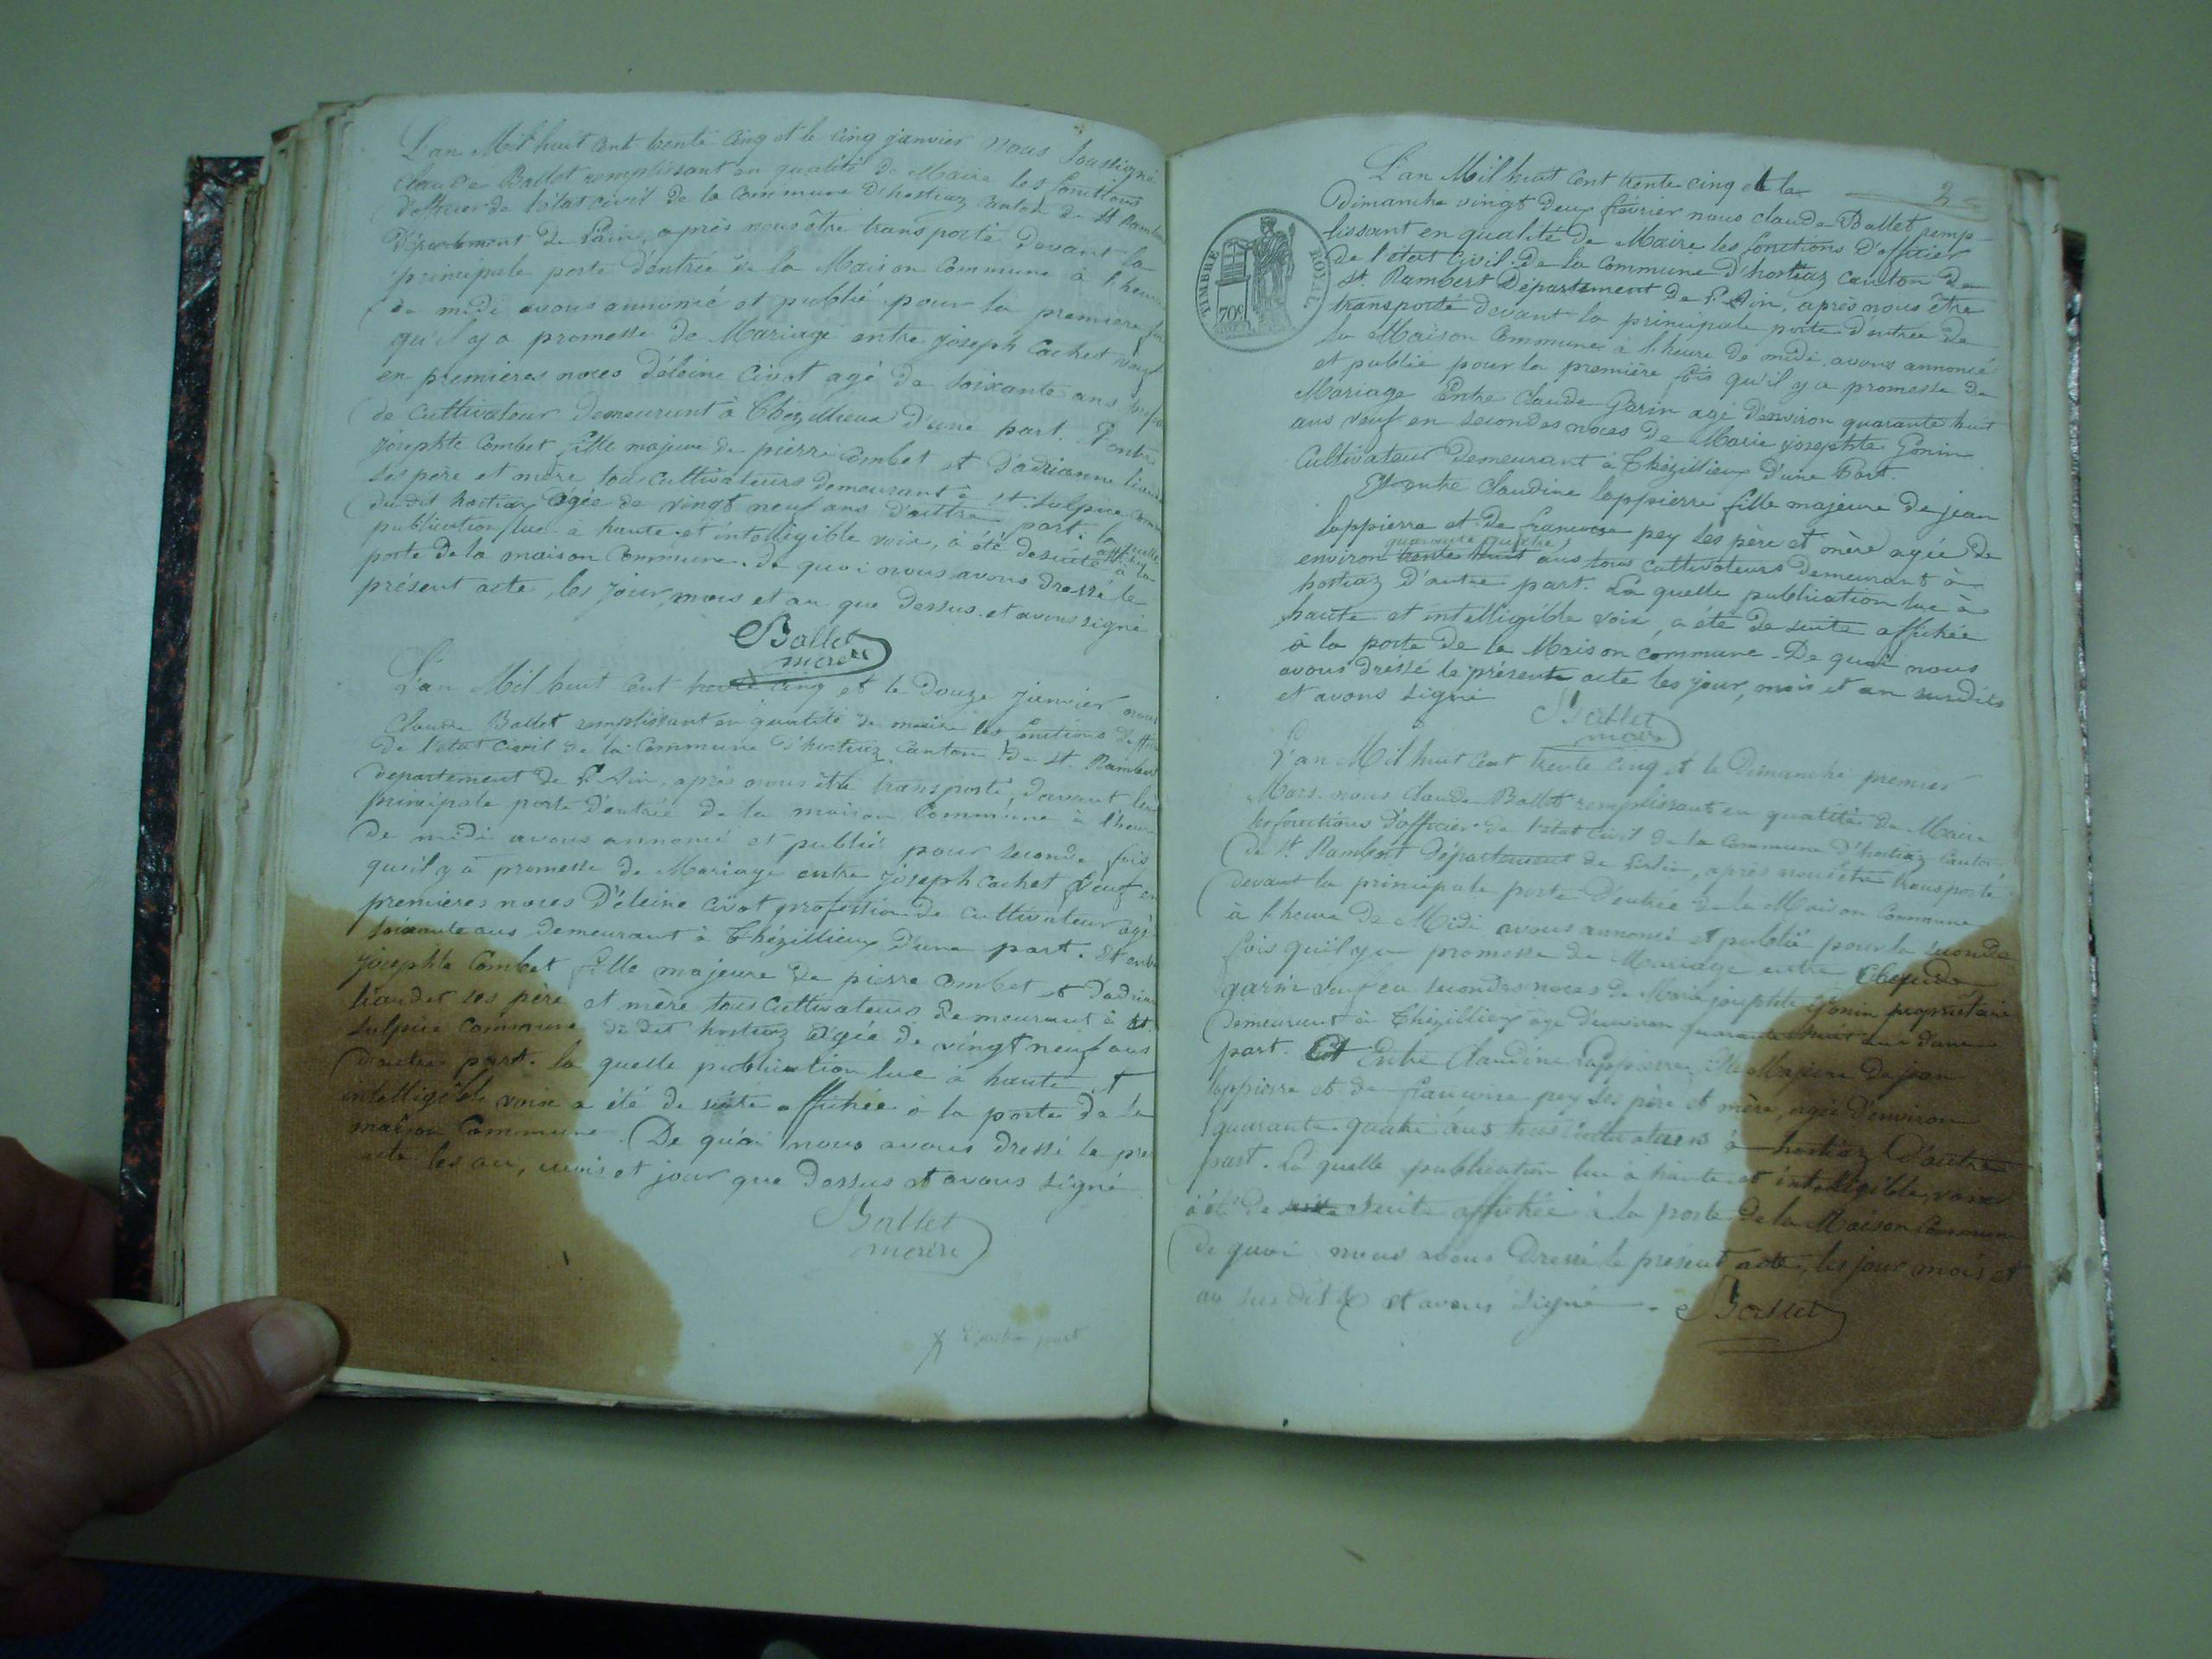 L'an Mil huit cent trente cinq et le cinq janvier nous soussigné
Claude Ballet remplissant en qualité de Maire les fonctions
d'officier de l'état civil de la Commune d'hostiaz canton de St Rambert
Département de l'ain, après nous être transporté devant la
principale porte d'entrée de la Maison Commune à l'heure
de midi avons annoncé et publié pour la premiere fois
qu'il y a promesse de Mariage entre joseph Cachet veuf
en premieres noces d'éleine Civot agé de soixante ans
de Cultivateur demeurant à Thézillieux d'une part. Et entre
josephte Combet fille majeure de pierre Combet et d'adrianne
ses père et mère tous Cultivateurs demeurant à st Sulpice
dudit hostiaz agée de vingt neuf ans d'autre part. laquelle
publication lue à haute et intelligible voix, à été de suite affichée à la
porte de la maison Commune. de quoi nous avons dressé le
présent acte, les jour, mois et an que dessus et avons signé
Ballet
maire
L'an Mil huit cent trente cinq et le Douze janvier nous
Claude Ballet remplissant en qualité de maire les fonctions
de l'état civil de la Commune d'hostiaz canton de St. Rambert
departement de l'Ain, après nous être transporté, devant la
principale porte d'entrée de la maison Commune à l'heure
de midi avons annoncé et publié pour seconde fois
qu'il y à promesse de Mariage entre joseph cachet veuf en
premieres noces d'éleine civot profession de cultivateur agé
soixante ans demeurant à Thézillieux d'une part. Et entre
josephte Combet fille majeure de pierre Combet et d'adrianne
ses père et mère tous Cultivateurs demeurant à st.
Sulpice Commune du dit hostiaz agée de vingt neuf ans
d'autre part. la quelle publication lue à haute et
intelligible voix a été de suite affichée à la porte de la
maison Commune. De quoi nous avons dressé le
acte les an, mois et jour que dessus et avons signé
Ballet
maire
2
L'an Mil huit cent trente cinq et le
Dimanche vingt deux février nous claude Ballet remp-
lissant en qualité de Maire les fonctions d'officier
de l'état civil de la commune d'hostiaz canton de
St. Rambert Département de l'Ain, après nous être
transporté devant la principale porte d'entrée de
la Maison Commune à l'heure de midi avons annoncé
et publié pour la première fois qu'il y a promesse de
Mariage Entre Claude Garin agé d'environ quarante huit
ans veuf en secondes noces de Marie josephte Gonin
Cultivateur demeurant à Thézillieux d'une Part.
Et entre Claudine lappierre fille majeure de jean
lappierre et de francoise pey ses père et mère agée de
quarante quatre
environ trente huit ans tous cultivateurs demeurant à
hostiaz d'autre part. La quelle publication lue à
haute et intelligible voix, a été de suite affichée
à la porte de la Maison commune. De quoi nous
avons dressé le présente acte les jour, mois et an susdits
et avons signé
Ballet
maire
L'an Mil huit Cent trente cinq et le Dimanche premier
Mars nous Claude Ballet remplissant en qualité de Maire
les fonctions d'officier de l'état civil de la commune d'hostiaz canton
de St. Rambert département de l'ain, après nous être transporté
devant la principale porte d'entrée de la Maison Commune
à l'heure de Midi avons annoncé et publié pour la seconde
fois qu'il y a promesse de Mariage entre Claude
garin veuf en secondes noces de Marie josephte Gonin propriétaire
demeurant à Thézillieux agé d'environ quarante huit ans d'une
part. Et Entre Claudine lappierre fille Majeure de jean
lappierre et de francoise pey ses père et mère, agée d'environ
quarante quatre ans tous Cultivateurs à hostiaz D'autre
part. La quelle publication lue à haute et intelligible voix
à été de suite affichée à la porte de la Maison Commune
de quoi nous avons dressé le présent acte, les jour mois et
an sus dit et avons signé. Ballet
TIMBRE ROYAL
70c